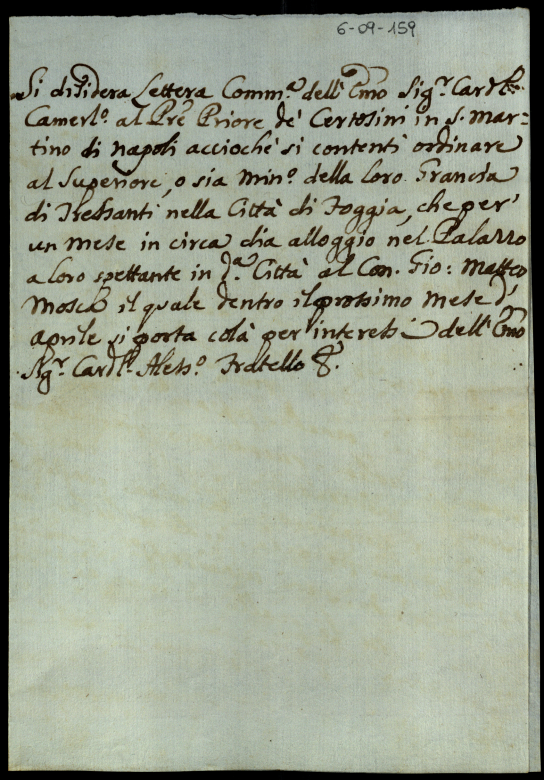 6-09-159
Si disidera Lettera Comm.a dell' Emo Sig.r Card.le
Camerl.o al Prê Priore de' Certosini in S. Mar=
tino di Napoli acciochè si contenti ordinare
al Superiore, o sia Min.o della loro Grancia
di Tressanti nella Città di Foggia, che per
un mese in circa dia alloggio nel Palazzo
a loro spettante in d.a Città al Can. Gio: Matteo
Mosca il quale dentro il prossimo mese d'
aprile si porta colà per interessi dell' Emo
Sig.r Card.le Aless.o Fratello &.